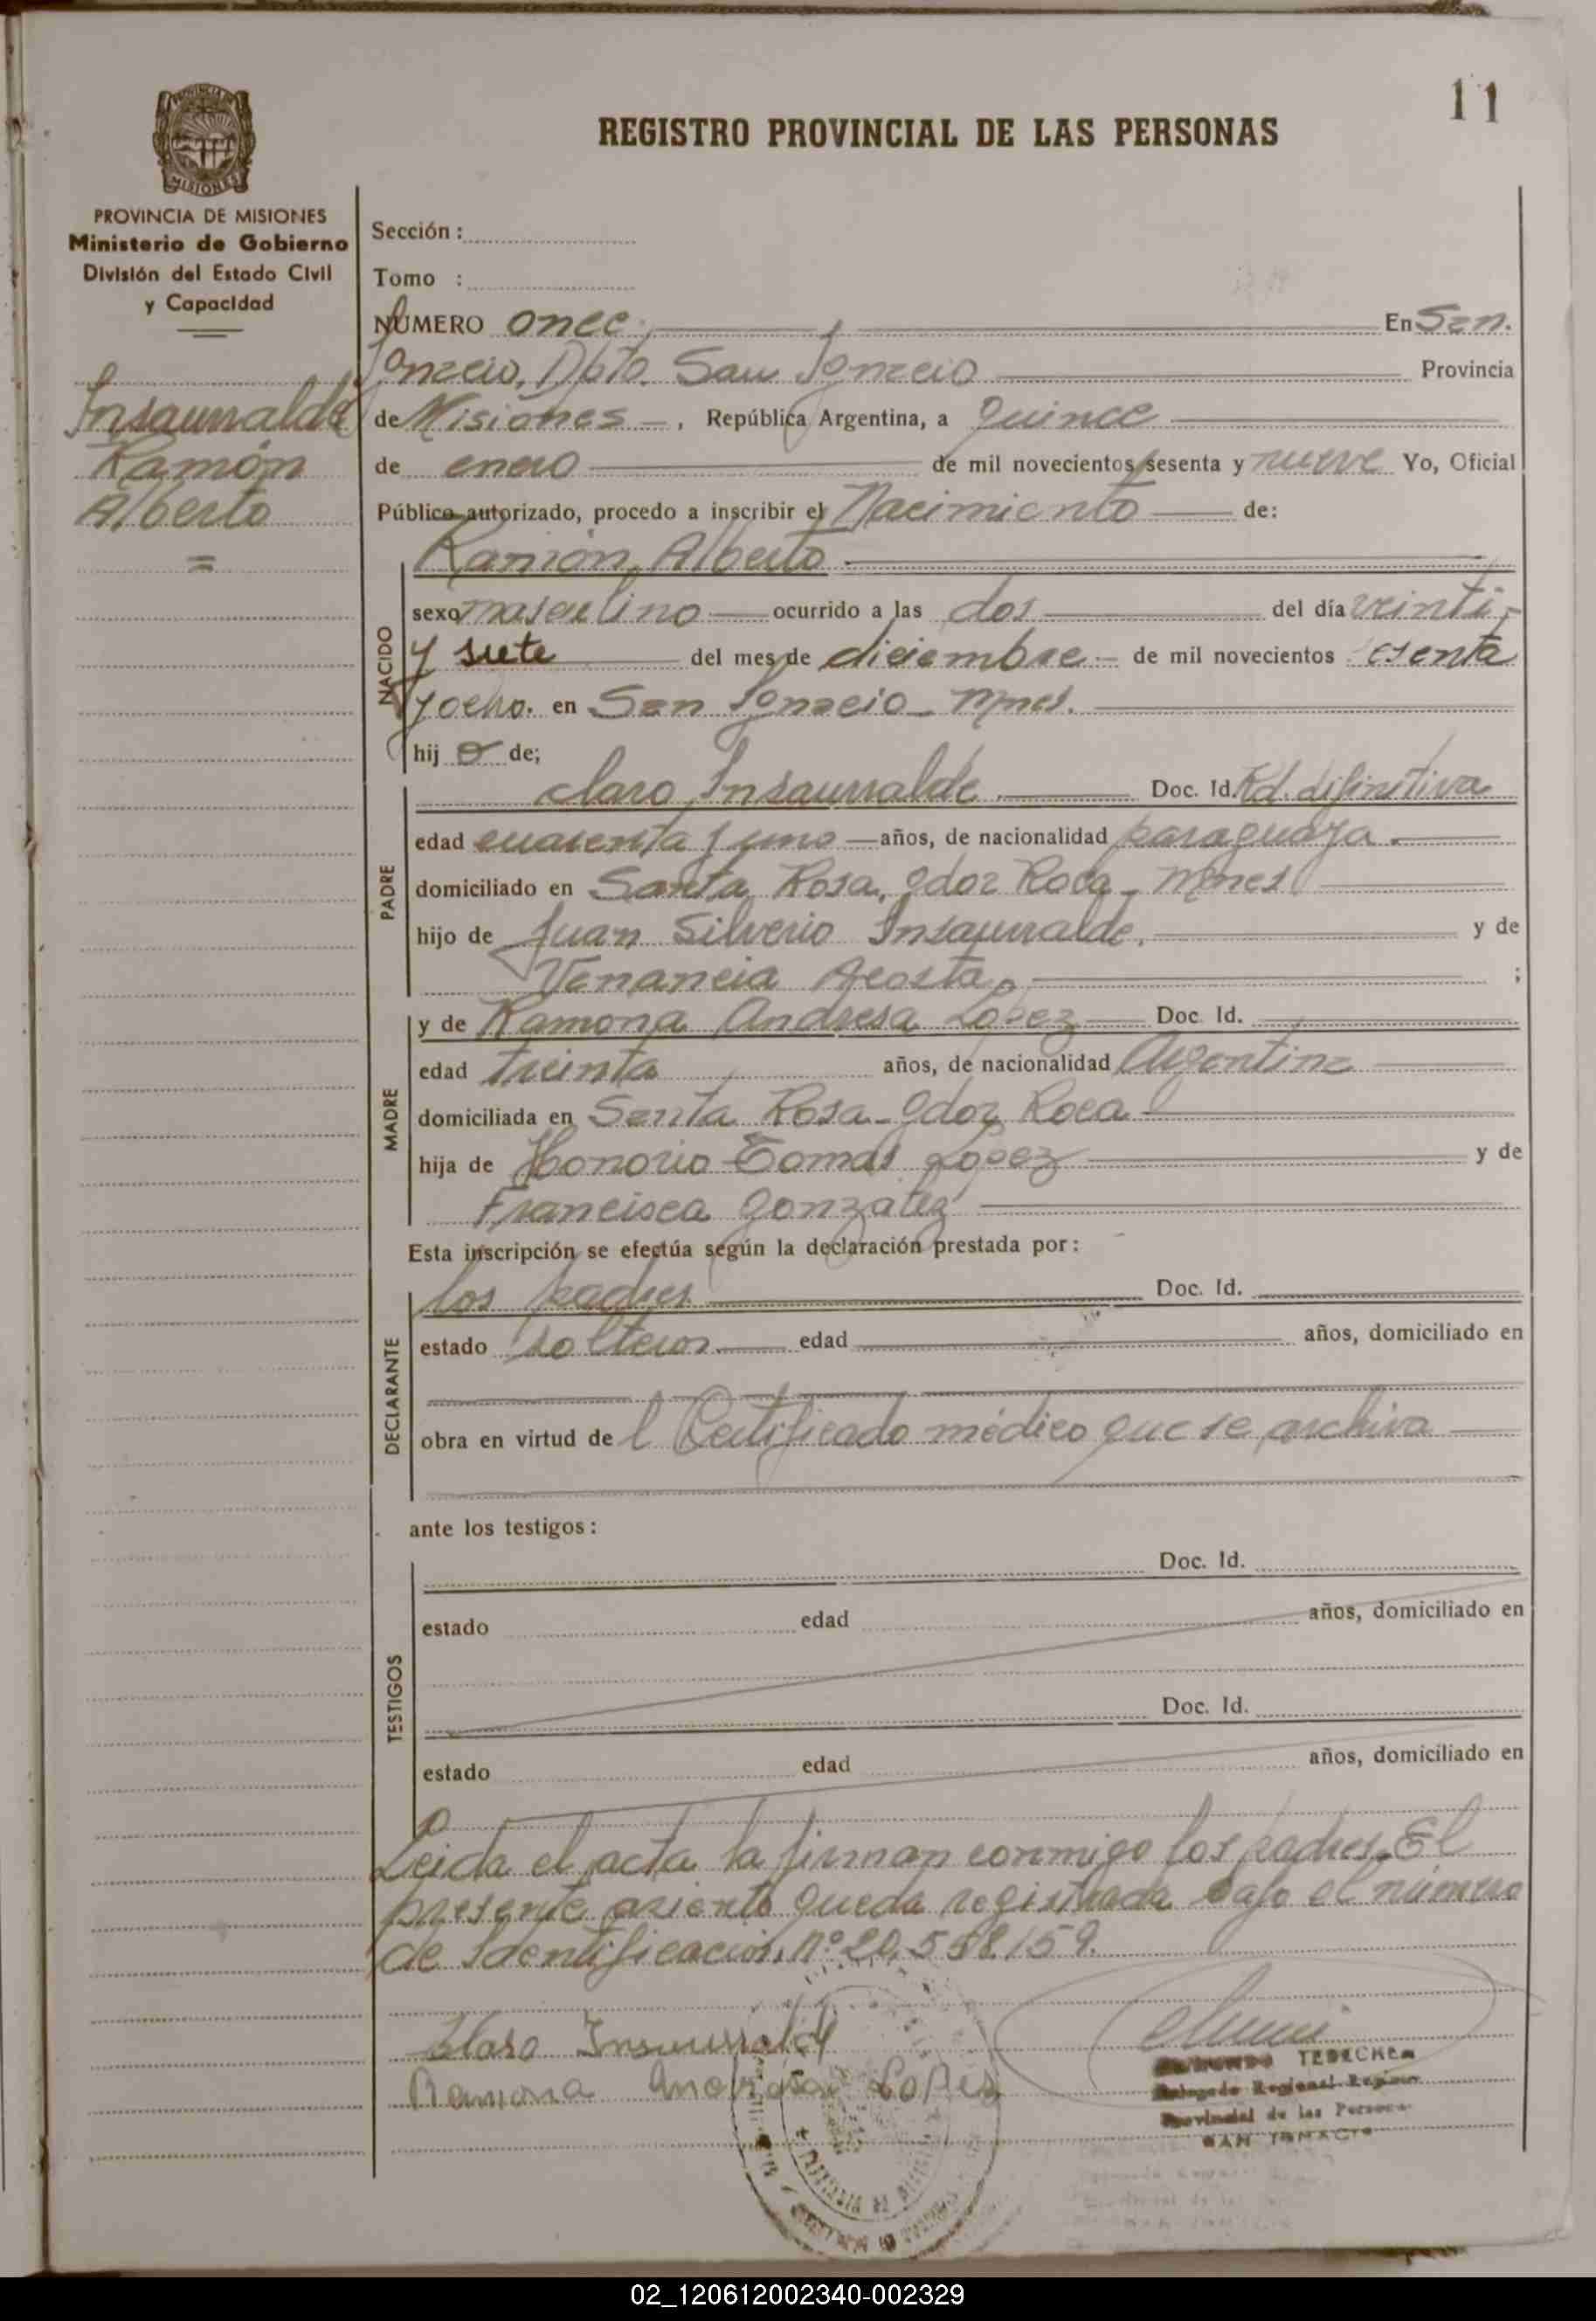 11
REGISTRO PROVINCIAL DE LAS PERSONAS
MISIONES
PROVINCIA DE MISIONES
Ministerio de Gobierno
División del Estado Civil
y Capacidad
Insaurralde
Ramón
Alberto
Sección :
Tomo :
NÚMERO once En San
Ignacio, Dpto. San Ignacio Provincia
de Misiones -, República Argentina, a quince
de enero de mil novecientos sesenta y nueve Yo, Oficial
Público autorizado, procedo a inscribir el Nacimiento de:
Ramón Alberto
NACIDO
sexo masculino ocurrido a las dos del día veinti-
y siete del mes de diciembre - de mil novecientos sesenta
y ocho. en San Ignacio - Mnes.
hij o de;
PADRE
claro Insaurralde Doc. Id. Rd. difinitiva
edad cuarenta y uno años, de nacionalidad paraguaya.
domiciliado en Santa Rosa, Gdor Roca - Mnes
hijo de Juan Silverio Insaurralde, y de
Venancia Acosta ;
MADRE
y de Ramona Andresa López Doc. Id.
edad treinta años, de nacionalidad Argentina
domiciliada en Santa Rosa - Gdor Roca
hija de Honorio Tomás López y de
Francisca González
Esta inscripción se efectúa según la declaración prestada por :
DECLARANTE
los padres Doc. Id.
estado solteros edad años, domiciliado en
obra en virtud de l Certificado médico que se archiva
ante los testigos :
TESTIGOS
Doc. Id.
estado edad años, domiciliado en
Doc. Id.
estado edad años, domiciliado en
Leida el acta la firman conmigo los padres. El
presente asiento queda registrada bajo el número
de Identificación nº 20.558.159.
Claro Insaurralde
Ramona Andresa Lopes
TEDECHEA
Delegado Regional Registro
Provincial de las Personas
SAN IGNACIO
02_120612002340-002329